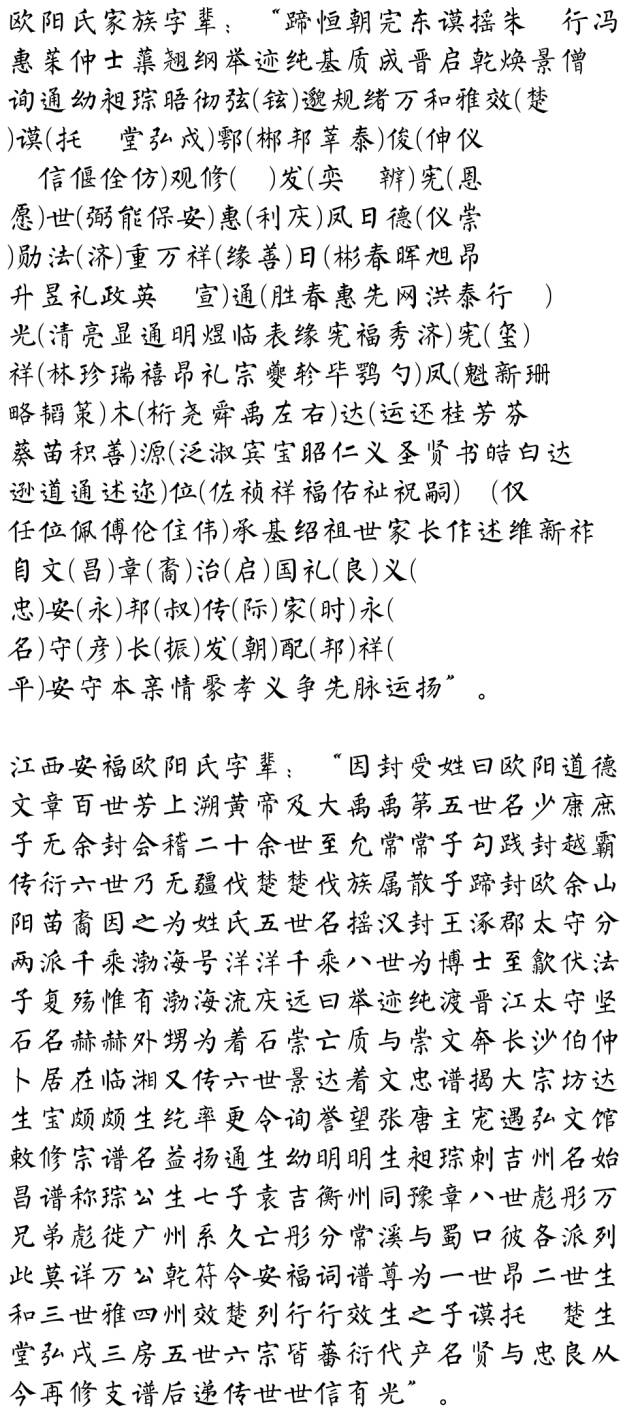 欧阳氏家族字辈：“蹄恒朝宪东谟摇朱　行冯
惠茱仲士蕖翘纲举迹纯基质成晋启乾焕景僧
询通幼昶琮晤彻弦(铉)邈规绪万和雅效(楚
)谟(托　堂弘戍)鄂(郴邦莘泰)俊(伸仪
　信偃佺仿)观修(　)发(奕　辩)宪(恩
愿)世(弼能保安)惠(利庆)凤日德(仪崇
)勋法(济)重万祥(缘善)日(彬春晖旭昂
升昱礼政英　宣)通(胜春惠先网洪泰行　)
光(清亮显通明煜临表缘宪福秀济)宪(玺)
祥(林珍瑞禧昂礼宗夔轸毕鹗勺)凤(魁新珊
略韬策)木(桁尧舜禹左右)达(运还桂芳芬
葵苗积善)源(泛淑宾宝昭仁义圣贤书皓白达
逊道通述迩)位(佐祯祥福佑祉祝嗣)　(仅
任位佩傅伦住伟)承基绍祖世家长作述维新祚
自文(昌)章(裔)治(启)国礼(良)义(
忠)安(永)邦(叔)传(际)家(时)永(
名)守(彦)长(振)发(朝)配(邦)祥(
平)安守本亲情聚孝义争先脉运扬”。
江西安福欧阳氏字辈：“因封受姓曰欧阳道德
文章百世芳上溯黄帝及大禹禹第五世名少康庶
子无余封会稽二十余世至允常常子勾践封越霸
传衍六世乃无疆伐楚楚伐族属散子蹄封欧余山
阳苗裔因之为姓氏五世名摇汉封王涿郡太守分
两派千乘渤海号洋洋千乘八世为博士至歙伏法
子复殇惟有渤海流庆远曰举迹纯渡晋江太守坚
石名赫赫外甥为着石崇亡质与崇文奔长沙伯仲
卜居在临湘又传六世景达着文忠谱揭大宗坊达
生宝颇颇生纥率更令询誉望张唐主宠遇弘文馆
敕修宗谱名益扬通生幼明明生昶琮刺吉州名始
昌谱称琮公生七子袁吉衡州同豫章八世彪彤万
兄弟彪徙广州系久亡彤分常溪与蜀口彼各派列
此莫详万公乾符令安福词谱尊为一世昂二世生
和三世雅四州效楚列行行效生之子谟托　楚生
堂弘戍三房五世六宗皆蕃衍代产名贤与忠良从
今再修支谱后递传世世信有光”。